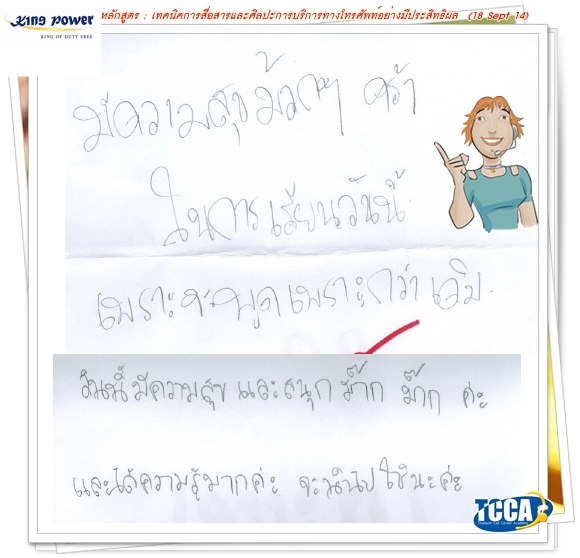 KING POWER
KING OF DUTY FREE
หลักสูตร : เทคนิคการสื่อสารและศิลปะการบริการทางโทรศัพท์อย่างมีประสิทธิผล (18 Sept 14)
มีความสุขม้วกๆ คร้า
ในการเรียนวันนี้
เพราะจะพูดเพราะกว่าเดิม
วันนี้ มีความสุข และสนุก ม๊าก ม๊าก ค่ะ
และได้ความรู้มากค่ะ จะนำไปใช้นะค่ะ
TCCA
Thailand Call Center Academy